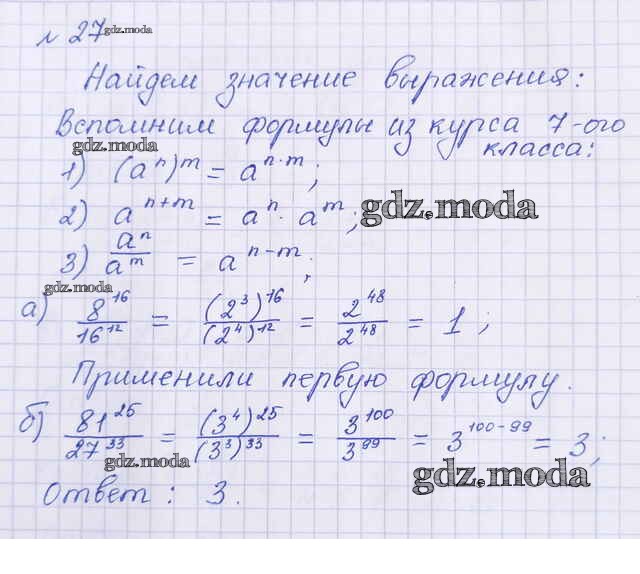 № 27 gdz.moda
Найдем значение выражения:
Вспомним формулы из курса 7-ого
класса:
gdz.moda
1) (aⁿ)ᵐ = aⁿ·ᵐ;
2) aⁿ⁺ᵐ = aⁿ · aᵐ; gdz.moda
3) aⁿ/aᵐ = aⁿ⁻ᵐ;
gdz.moda
а) 8¹⁶/16¹² = (2³)¹⁶/(2⁴)¹² = 2⁴⁸/2⁴⁸ = 1;
Применили первую формулу.
б) 81²⁵/27³³ = (3⁴)²⁵/(3³)³³ = 3¹⁰⁰/3⁹⁹ = 3¹⁰⁰⁻⁹⁹ = 3;
gdz.moda
gdz.moda
Ответ: 3.